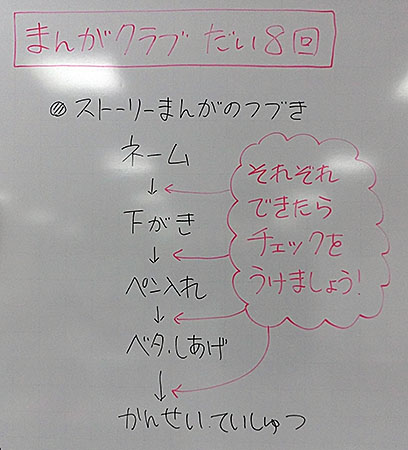 まんがクラブ だい8回
◎ ストーリーまんがのつづき
ネーム
↓
下がき
↓
ペン入れ
↓
ベタ・しあげ
↓
かんせい・ていしゅつ
それぞれ
できたら
チェックを
うけましょう!